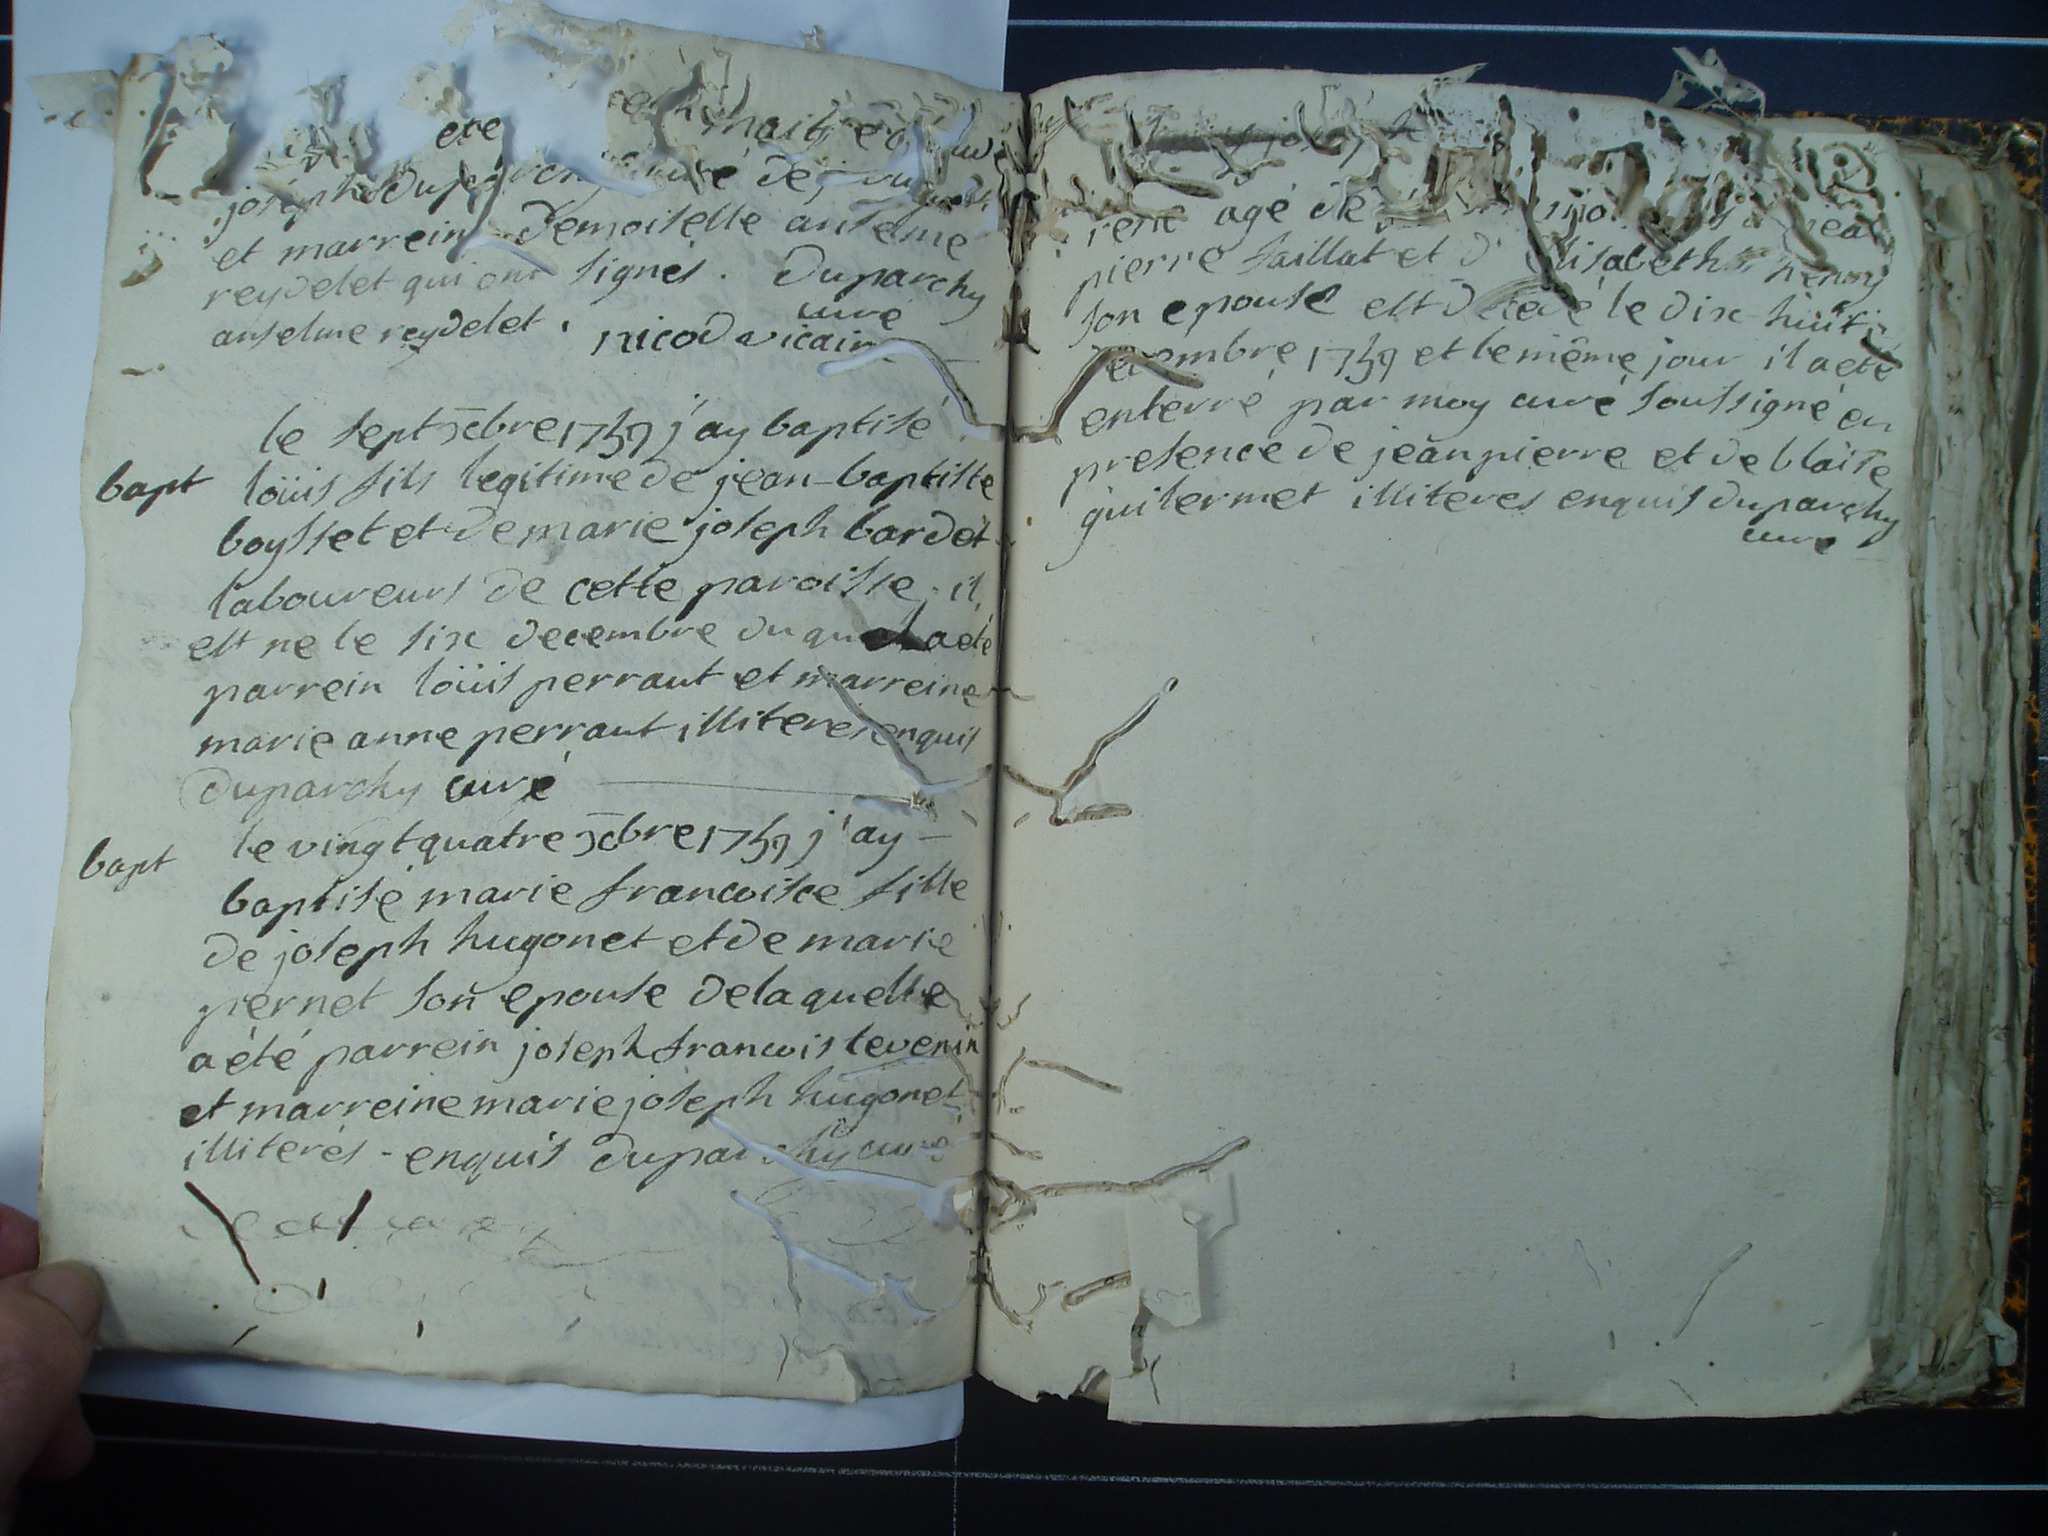 ete maitre
joseph duparchy curé de
et marrein demoiselle anselme
reydelet qui ont signés . Duparchy
curé
anselme reydelet . nicod vicaire
le sept xbre 1759 j'ay baptisé
bapt loüis fils legitime de jean-baptiste
boysset et de marie joseph bardet
laboureurs de cette paroisse . il
est ne le six decembre duquel a eté
parrein loüis perraut et marreine
marie anne perraut illiteres enquis
Duparchy curé
le vingt quatre xbre 1759 j'ay
bapt baptisé marie francoise fille
de joseph hugonet et de marie
pernet son epouse de laquelle
a été parrein joseph francois tevenin
et marreine marie joseph hugonet
illiterés - enquis duparchy curé
agé de
pierre saillat et d'elisabeth
son epouse est decedé le dix huit
1759 et le même jour il a eté
enterré par moy curé soussigné en
presence de jean pierre et de blaise
guilermet illiteres enquis duparchy
curé